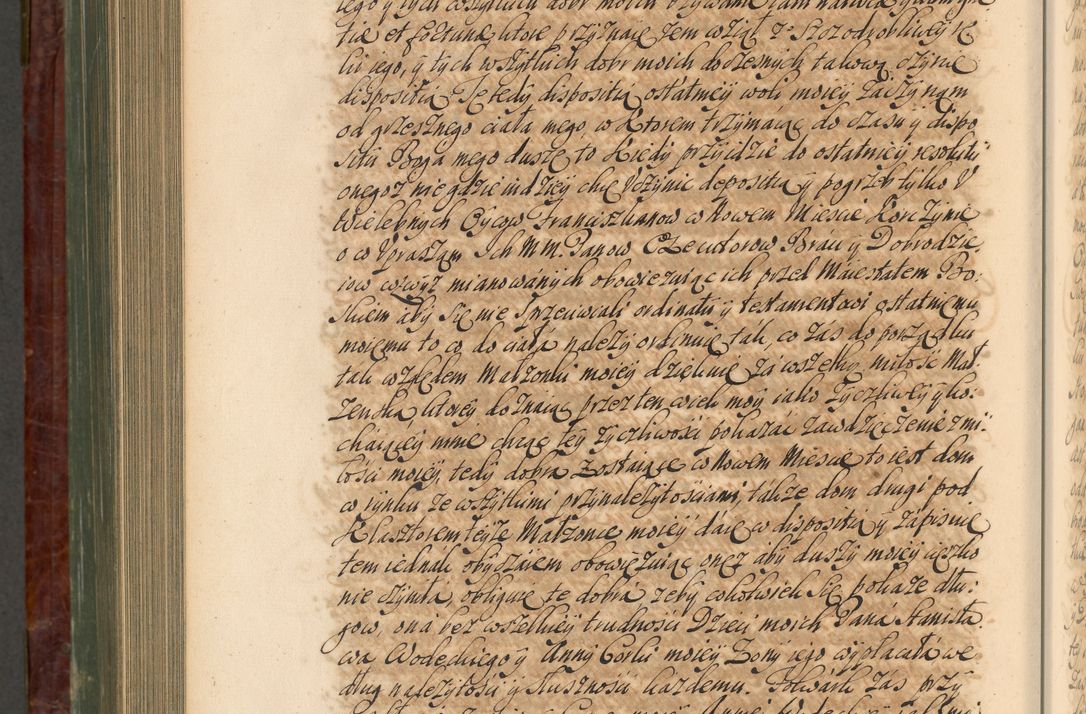 tie et fortuna, ktore przyznaię żem wziął z Szczodrobliwey R
ki iego, y tych wszytkich dobr moich doczesnych takową czynię
dispositią. Tę tedy dispositią ostatniey woli moiey zaczynam
od grzesznego ciała mego, w Ktorem trzymaiąc do czasu y dispo
sitii Boga mego duszę to Kiedy przyidzie do ostatniey resolutii
onegoż nie gdzie indziey chcę Uczynić depositią y pogrzeb tylko U
Wielebnych Oycow Franciszkanow w Nowem Mieście Korczynie
o co Upraszam Ich MM. Panow Execuitorow Braci y Dobrodzie
iow wzwyż mianowanych obowięzuiąc ich przed Maiestatem Bo:
skiem aby się nie sprzeciwiali ordinatii y testamentowi ostatniemu
moiemu to co do ciała należy ordinuię tak, co zas do porządku
tak względem Małzonki moiey dzielnie za wszemy, miłość Mał
żenską, ktorey doznaiąc przez ten wiek moy iako życzliwey y ko:
chaiącey mnie chcąc tey życzliwości pokazać zawdzięczenie z mi:
łości moiey, tedy dobra zostaiące w Nowem Mieście to iest dom
w rynku ze wszytkimi przynależytościami, także dom drugi pod
Klasztorem teyże Małżonce moiey daię w dispositią y zapisuię
tem iednak obyczaiem obowięzuiąc onęż aby duszy moiey ciężko
nie czyniła, obliguię te dobra żeby cokolwiek się pokaże dłu:
gow, ona bez wszelkiey trudności Dzieci moich Pana Stanisła
wa Wodeckiego y Anny Corki moiey Żony iego wypłacała we
dług należytości y słuszności każdemu. Folwark zas przy